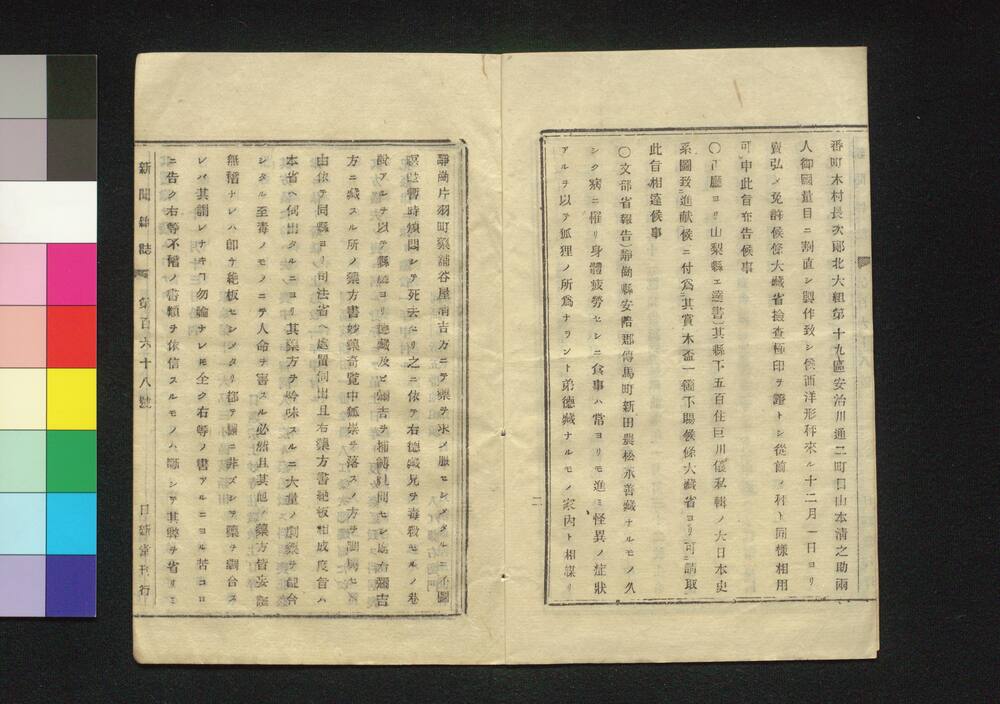 番町木村長次郎北大組第十九區安治川通二町目山本清之助兩
人御國量目ニ割直シ製作致シ候西洋形秤來ル十二月一日ヨリ
賣弘メ免許候條大藏省撿查極印ヲ證トシ從前ノ秤ト同樣相用
可申此旨布告候事
〇正廳ヨリ山梨縣エ達書)其縣下五百住巨川儀私輯ノ大日本史
系圖致進献候ニ付爲其賞木盃一箇下賜候條大藏省ヨリ可請取
此旨相達候事
〇文部省報告)靜岡縣安倍郡傳馬町新田農松永善藏ナルモノ久
シク病ニ罹リ身體疲勞セシニ食事ハ常ヨリモ進ミ怪異ノ症狀
アルヲ以テ狐狸ノ所爲ナラント弟德藏ナルモノ家内ト相謀リ
靜岡片羽町藥舖谷屋清吉方ニテ藥ヲ求メ服セシメタルニ不圖
暫時煩悶シテ死去セリ之ニ依テ右德藏兄ヲ毒殺セルノ巷
說アルヲ以テ縣廳ヨリ德藏及ヒ彌吉ヲ捕縛
方ニ藏スル所ノ藥方書妙藥奇覽中狐祟ヲ落スノ方ヲ
由依テ同縣ヨリ司法省ヘ處置伺出且右藥方書絶板相成度旨ハ
本省ヘ伺出タルニヨリ其藥方ヲ吟味スルニ大量ノ劇藥ヲ配合
シタル至毒ノモノニテ人命ヲ害スル必然且其他ノ藥方皆妄誕
無稽ナレハ即チ絶板セシメタリ都テ醫ニ非ズシテ藥ヲ調合ス
レバ其謂レナキコ勿論ナレ𪜈全ク右等ノ書アルニヨル苦コロ
ニ告ク右等不稽ノ書類ヲ依信スルモノハ斷シテ其弊ヲ省リミ
新聞雜誌 第百六十八號 日新堂刊行
二